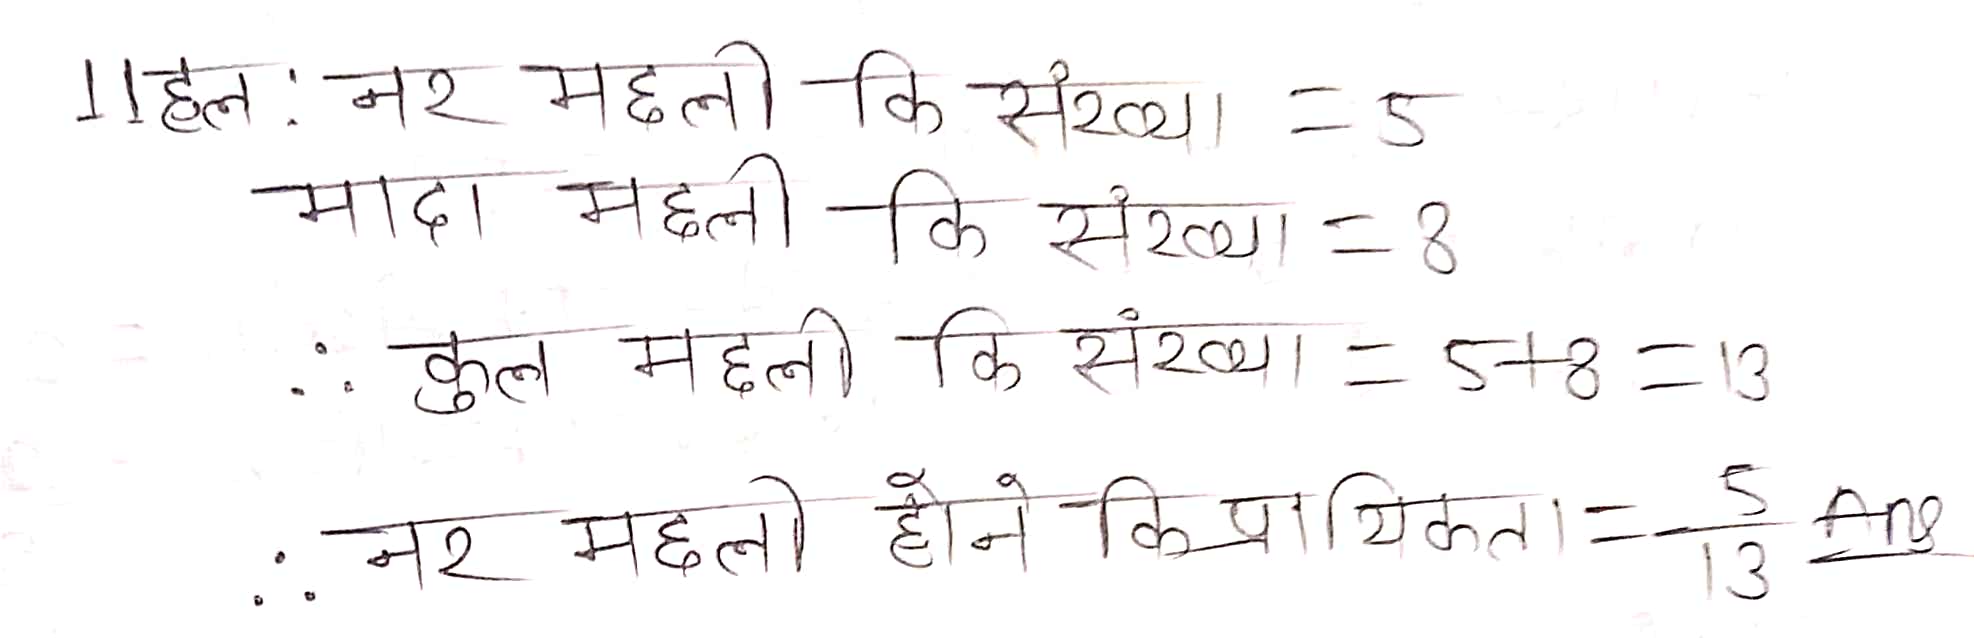 11हल: नर मछली कि संख्या = 5
मादा मछली कि संख्या = 8
∴ कुल मछली कि संख्या = 5+8 = 13
∴ नर मछली होने कि प्रायिकता = 5/13 Ans